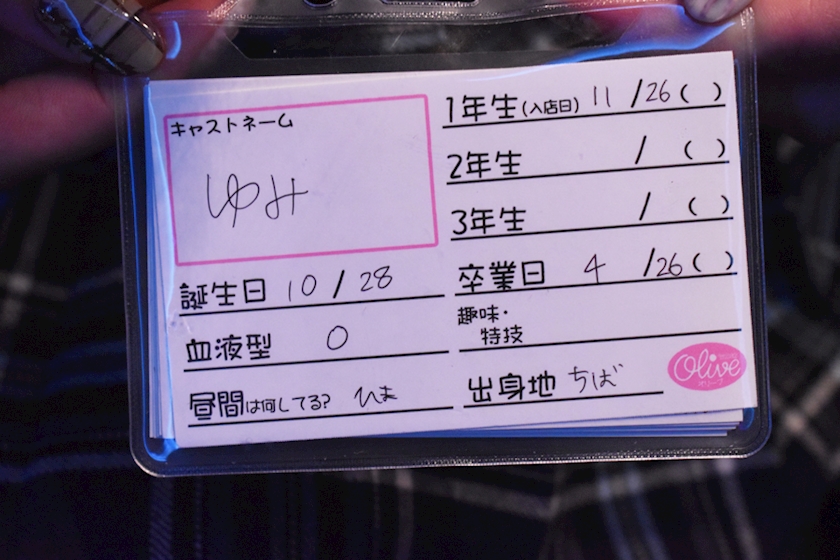 キャストネーム
ゆみ
誕生日 10 / 28
血液型 O
昼間は何してる? ひま
1年生(入店日) 11 /26( )
2年生 / ( )
3年生 / ( )
卒業日 4 /26( )
趣味・
特技
出身地 ちば
Olive